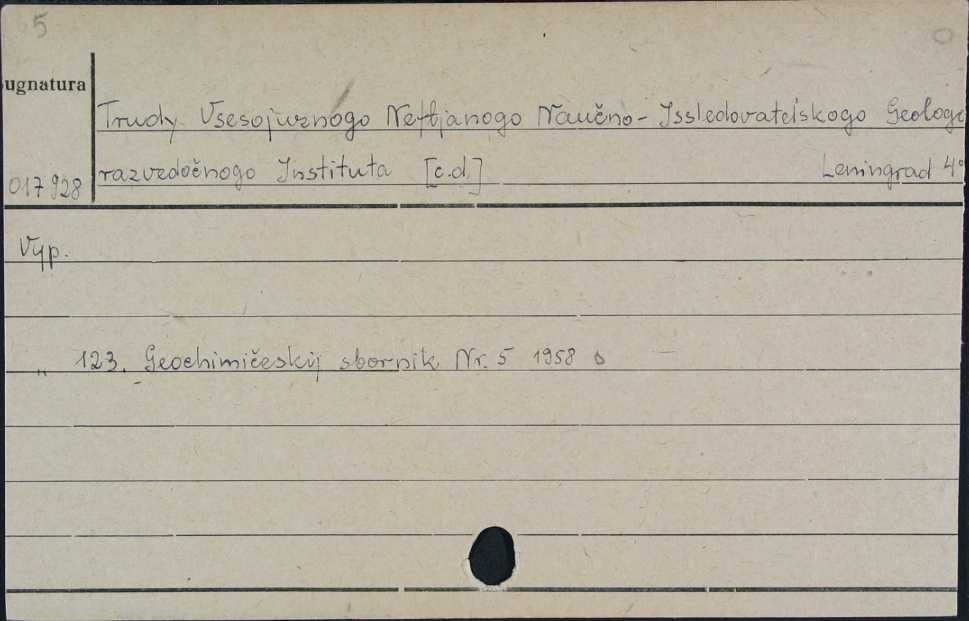 5
Sygnatura
Trudy Vsesojuznogo Neftjanogo Naučno-Issledovatelskogo Geologo
017928 razvedočnogo Instituta [c.d.] Leningrad 4°
Vyp.
" 123. Geochimičeskij sbornik Nr. 5 1958